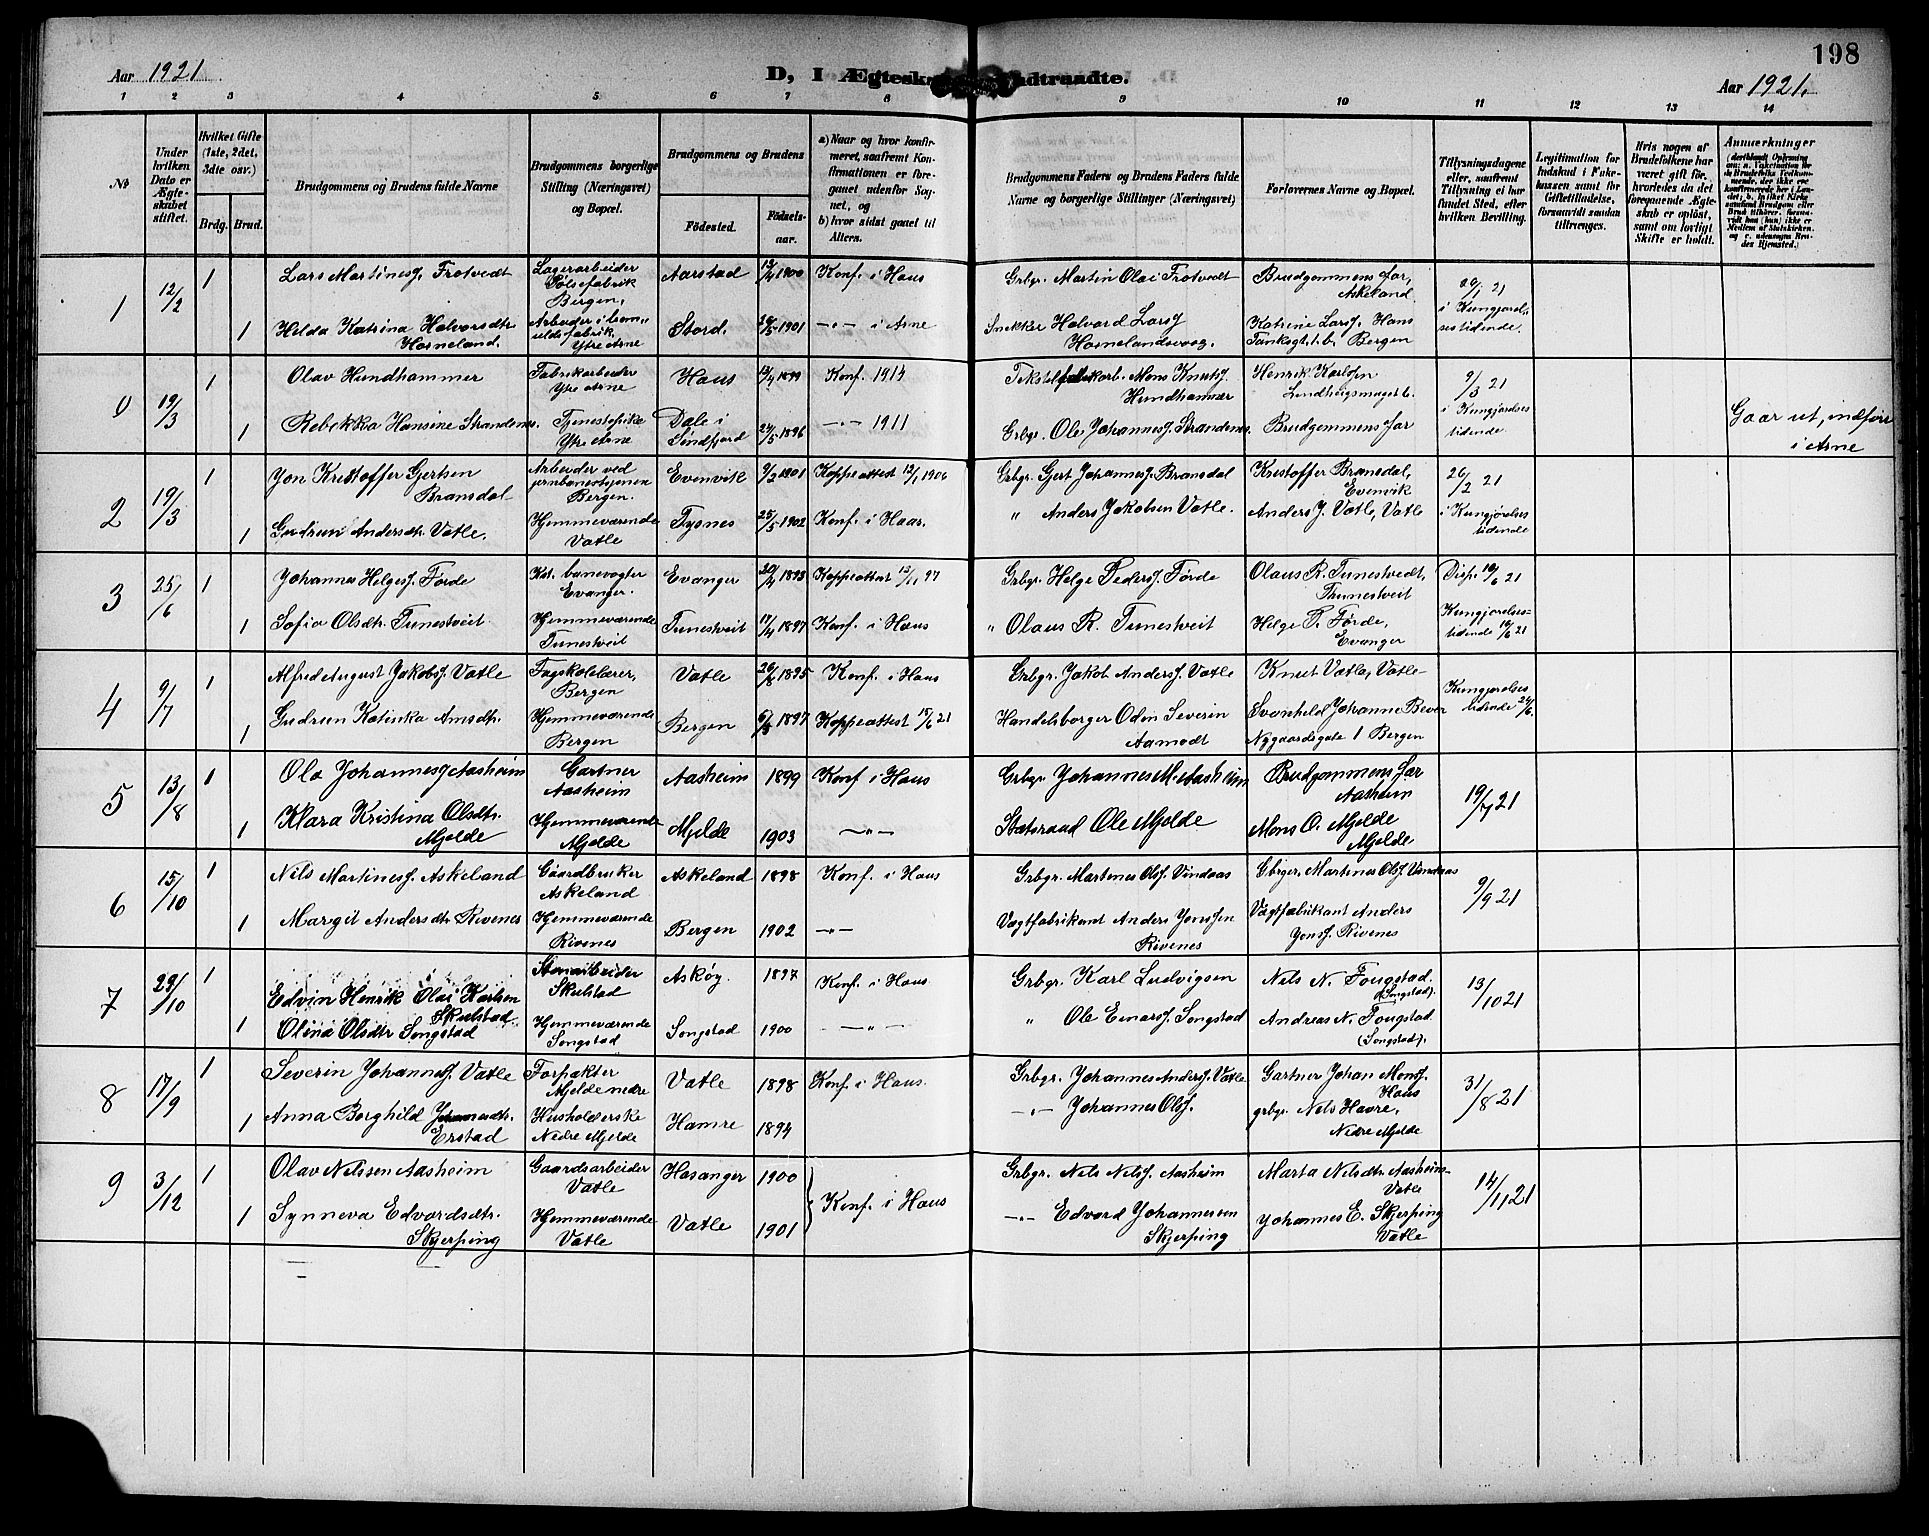 198
Aar 1921
D, I Ægtesk
ndtraadte.
Aar 1921.
1 2 3 4 5 6 7 8 9 10 11 12 13 14
No
Under hvilken Dato er Ægteskabet stiftet.
Hvilket Gifte (1ste, 2det, 3die osv.)
Brdg. Brud.
Brudgommens og Brudens fulde Navne
Brudgommens borgerlige Stilling (Næringsvei) og Bopæl.
Brudgommens og Brudens
Födested.
Födselsaar.
a) Naar og hvor konfirmeret, saafremt Konfirmationen er foregaaet udenfor Sognet, og
b) hvor sidst gaaet til Alters.
Brudgommens Faders og Brudens Faders fulde Navne og borgerlige Stillinger (Næringsvei)
Forlovernes Navne og Bopæl.
Tillysningsdagene eller, saafremt Tillysning ei har fundet Sted, efter hvilken Bevilling.
Legitimation for Indskud i Enkekassen samt for Giftetilladelse, forsaavidt saadan tiltrænges.
Hvis nogen af Brudefolkene har været gift før, hvorledes da det foregaaende Ægteskab er opløst, samt om lovligt Skifte er holdt.
Anmærkninger
1 12/2 1 Lars Martinesj. Frotvedt Lagerarbeider Pølsefabrik Bergen. Aarstad 1900 Konf. i Haus Grbgr. Martin Olai Frotvedt Brudgommens far, Askeland 26/1 21 i Kungjørelsestidende.
1 Hilda Katrina Halvorsdtr. Horneland. Ytre Arne Stord. 1901 —"— i Arne Snekker Halvard Larsj. Hornelandsvaag. Katrine Larsj. Hans Tanksgt. 1 b. Bergen
0 19/3 1 Olav Hundhammer Fabrikarbeider Ytre Arne Haus 1899 Konf. 1914 Mons Knutsj. Hundhammer Henrik Karlsen 9/3 21 i Kungjørelsestidende
1 Rebekka Hansine Strandenes. Tjenestepike Ytre Arne Dale i Søndfjord 24/5 1896 —"— 1911 Grbgr. Ole Johannesj. Strandenes. Brudgommens far
Gaar ut, indføres i Arne
2 19/3 1 Jon Kristoffer Gjertsen Bransdal Arbeider ved jernbanestasjonen Bergen. Evenvik 9/2 1901 Koppeattest 12/1 1906 Grbgr. Gjert Johannesj. Bransdal Kristoffer Bransdal, Evenvik 26/2 21 i Kungjørelsestidende
1 Gudrun Andersdtr. Vatle. Hjemmeværende Vatle Tysnes 25/5 1902 Konf. i Haus. " Anders Jakobsen Vatle. Anders J. Vatle, Vatle
3 25/6 1 Johannes Helgesj. Førde Kst. banevogter Evanger. Evanger 1893 Koppeattest 97 Grbgr. Helge Pedersj. Førde Olaus R. Tunestvedt, Thunestveit Disp. 10/6 21
1 Sofia Olsdtr. Tunestveit Hjemmeværende Tunestveit Tunestveit 17/4 1897 Konf. i Haus " Olaus R. Tunestveit Helge P. Førde, Evanger Kungjørelsestidende 10/6 21
4 9/7 1 Alfred August Jakobsj. Vatle Fagskolelærer, Bergen Vatle 26/8 1895 Konf. i Haus Grbgr. Jakob Andersj. Vatle Knut Vatle, Vatle Kungjørelsestidende 24/6.
1 Gudrun Katinka Arnsdtr. Hjemmeværende Bergen Bergen 1897 Koppeattest 15/6 21 Handelsborger Odin Severin Aamodt Svanhild Johanne Bever Nygaardsgate 1 Bergen
5 13/8 1 Ola Johannesj. Aasheim Gartner Aasheim Aasheim 1899 Konf. i Haus Grbgr. Johannes M. Aasheim Brudgommens far Aasheim 19/7 21
1 Klara Kristina Olsdtr. Mjelde Hjemmeværende Mjelde Mjelde 1903 —"— Statsraad Ole Mjelde Mons O. Mjelde Mjelde
6 15/10 1 Nils Martinesj. Askeland Gaardbruker Askeland Askeland 1898 Konf. i Haus Grbgr. Martines Olsj. Vindaas Gbrger. Martines Olsj. Vindaas 9/9 21
1 Margit Andersdtr. Rivenes Hjemmeværende Rivenes Bergen 1902 —"— Vægtfabrikant Anders Jonsjen Rivenes Vægtfabrikant Anders Jonsj. Rivenes
7 29/10 1 Edvin Henrik Olai Karlsen Skulstad Skulstad Askøy. 1897 Konf. i Haus Grbgr. Karl Ludvigsen Nils N. Fougstad. (Songstad). 13/10 21
1 Olina Olsdtr Songstad Hjemmeværende Songstad Songstad 1900 —"— " Ole Einarsj. Songstad Andreas N. Fougstad (Songstad).
8 17/9 1 Severin Johannesj. Vatle Forpakter Mjelde nedre Vatle 1898 Konf. i Haus. Grbgr. Johannes Andersj. Vatle Gartner Johan Monsj. Haus 31/8 21
1 Anna Borghild Johannesdtr. Erstad Husholderske Nedre Mjelde Hamre 1894 —"— Johannes Olsj. grbgr. Nils Havre, Nedre Mjelde
9 3/12 1 Olav Nilssen Aasheim Gaardsarbeider Vatle Hosanger 1900 Konf. i Haus Grbgr. Nils Nilsj. Aasheim Marta Nilsdtr. Aasheim Vatle 14/11 21
1 Synneva Edvardsdtr. Skjerping Hjemmeværende Vatle Vatle 1901 —"— Edvard Johannessen Skjerping Johannes E. Skjerping Vatle